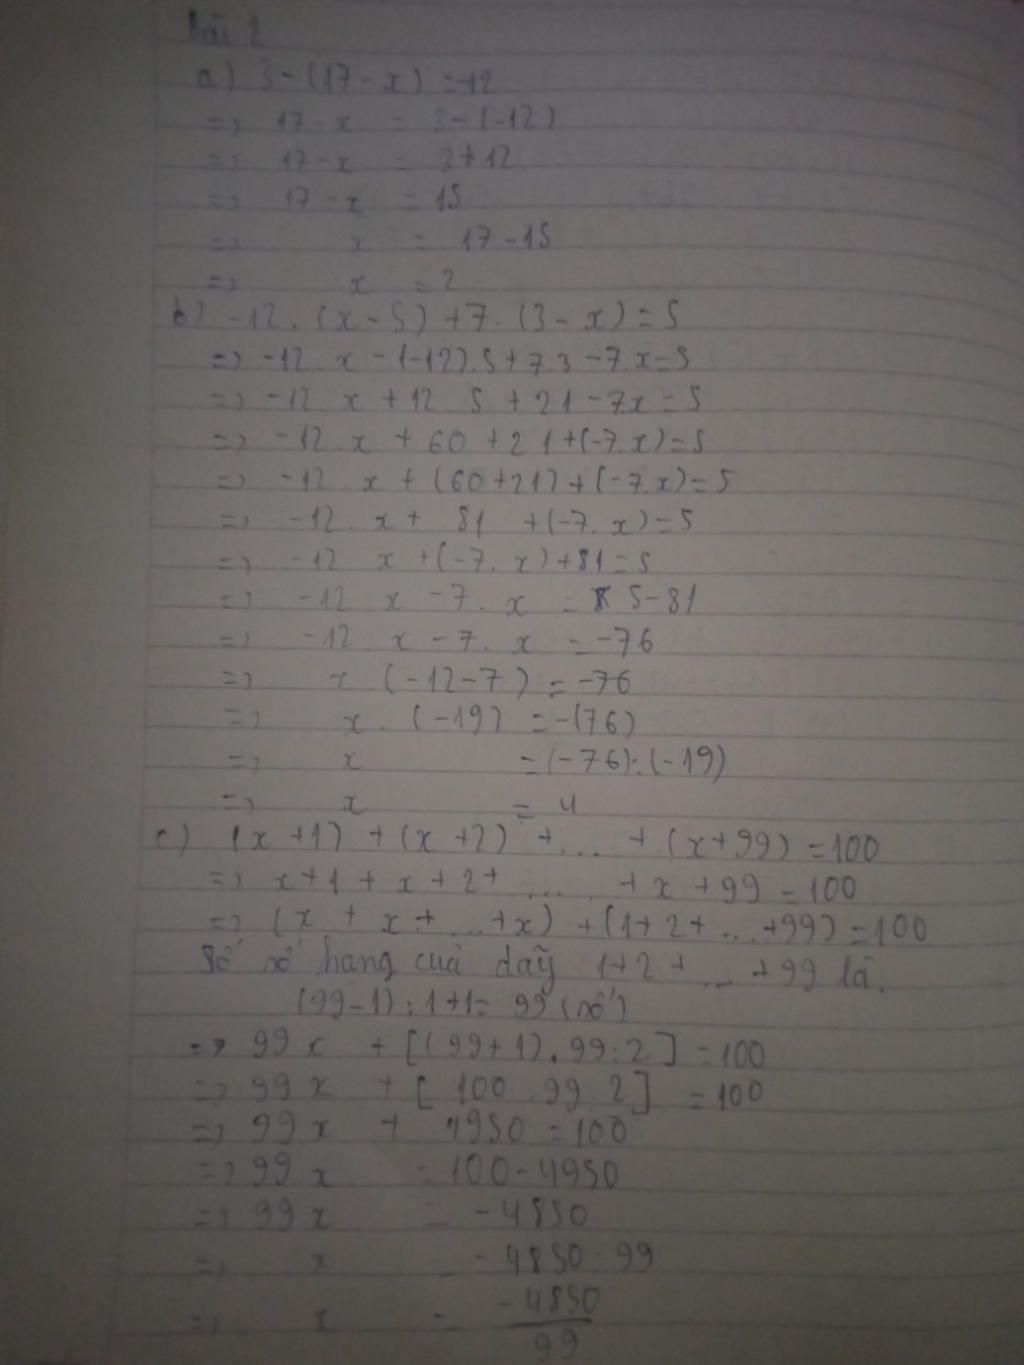 Bài 2
a) 3 - (17 - x) = -12
=> 17 - x = 3 - (-12)
=> 17 - x = 3 + 12
=> 17 - x = 15
=> x = 17 - 15
=> x = 2
b) -12 . (x - 5) + 7 . (3 - x) = 5
=> -12 . x - (-12) . 5 + 7.3 - 7.x = 5
=> -12 . x + 12 . 5 + 21 - 7x = 5
=> -12 . x + 60 + 21 + (-7.x) = 5
=> -12 . x + (60 + 21) + (-7.x) = 5
=> -12 . x + 81 + (-7. x) = 5
=> -12 x + (-7. x) + 81 = 5
=> -12 x - 7. x = 5 - 81
=> -12 x - 7. x = -76
=> x (-12 - 7) = -76
=> x . (-19) = -(76)
=> x = (-76) : (-19)
=> x = 4
c) (x + 1) + (x + 2) + ... + (x + 99) = 100
=> x + 1 + x + 2 + .... + x + 99 = 100
=> (x + x + ... + x) + (1 + 2 + ... + 99) = 100
Số số hang cuả daỹ 1 + 2 + ... + 99 là.
(99 - 1) : 1 + 1 = 99 (số)
=> 99 x + [(99 + 1) . 99 : 2] = 100
=> 99 x + [100 . 99 : 2] = 100
=> 99 x + 4950 = 100
=> 99 x = 100 - 4950
=> 99 x = -4850
=> x = -4850 : 99
=> x = -4850/99